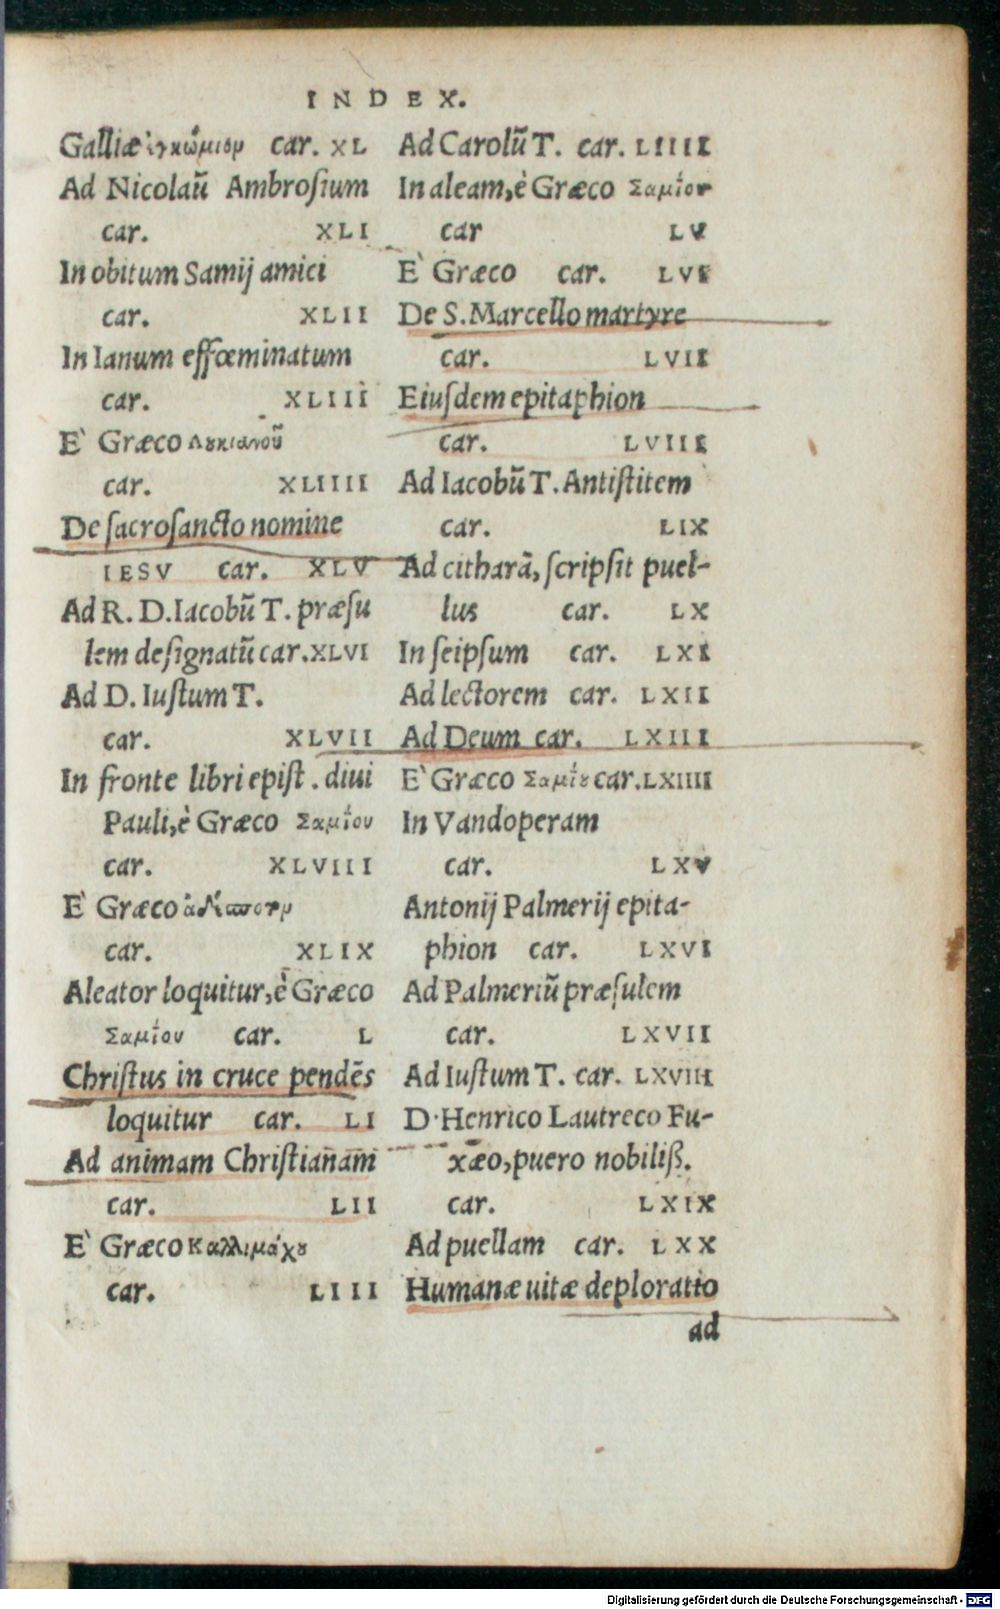 INDEX.
Galliæ ἐγκώμιον car. XL
Ad Nicolaū Ambrosium
car. XLI
In obitum Samij amici
car. XLII
In Ianum effœminatum
car. XLIII
E` Græco Λουκιανοῦ
car. XLIIII
De sacrosancto nomine
IESV car. XLV
Ad R. D. Iacobū T. præsu
lem designatū car. XLVI
Ad D. Iustum T.
car. XLVII
In fronte libri epist. diui
Pauli, è Græco Σαμίου
car. XLVIII
E` Græco
car. XLIX
Aleator loquitur, è Græco
Σαμίου car. L
Christus in cruce pendēs
loquitur car. LI
Ad animam Christianam
car. LII
E` Græco Καλλιμάχου
car. LIII
Ad Carolū T. car. LIIII
In aleam, è Græco Σαμίου
car LV
E` Græco car. LVI
De S. Marcello martyre
car. LVII
Eiusdem epitaphion
car. LVIII
Ad Iacobū T. Antistitem
car. LIX
Ad citharā, scripsit puel-
lus car. LX
In seipsum car. LXI
Ad lectorem car. LXII
Ad Deum car. LXIII
E` Græco Σαμίου car. LXIIII
In Vandoperam
car. LXV
Antonij Palmerij epita-
phion car. LXVI
Ad Palmeriū præsulem
car. LXVII
Ad Iustum T. car. LXVIII
D. Henrico Lautreco Fu-
xæo, puero nobiliß.
car. LXIX
Ad puellam car. LXX
Humanæ uitæ deploratio
ad
Digitalisierung gefördert durch die Deutsche Forschungsgemeinschaft - DFG